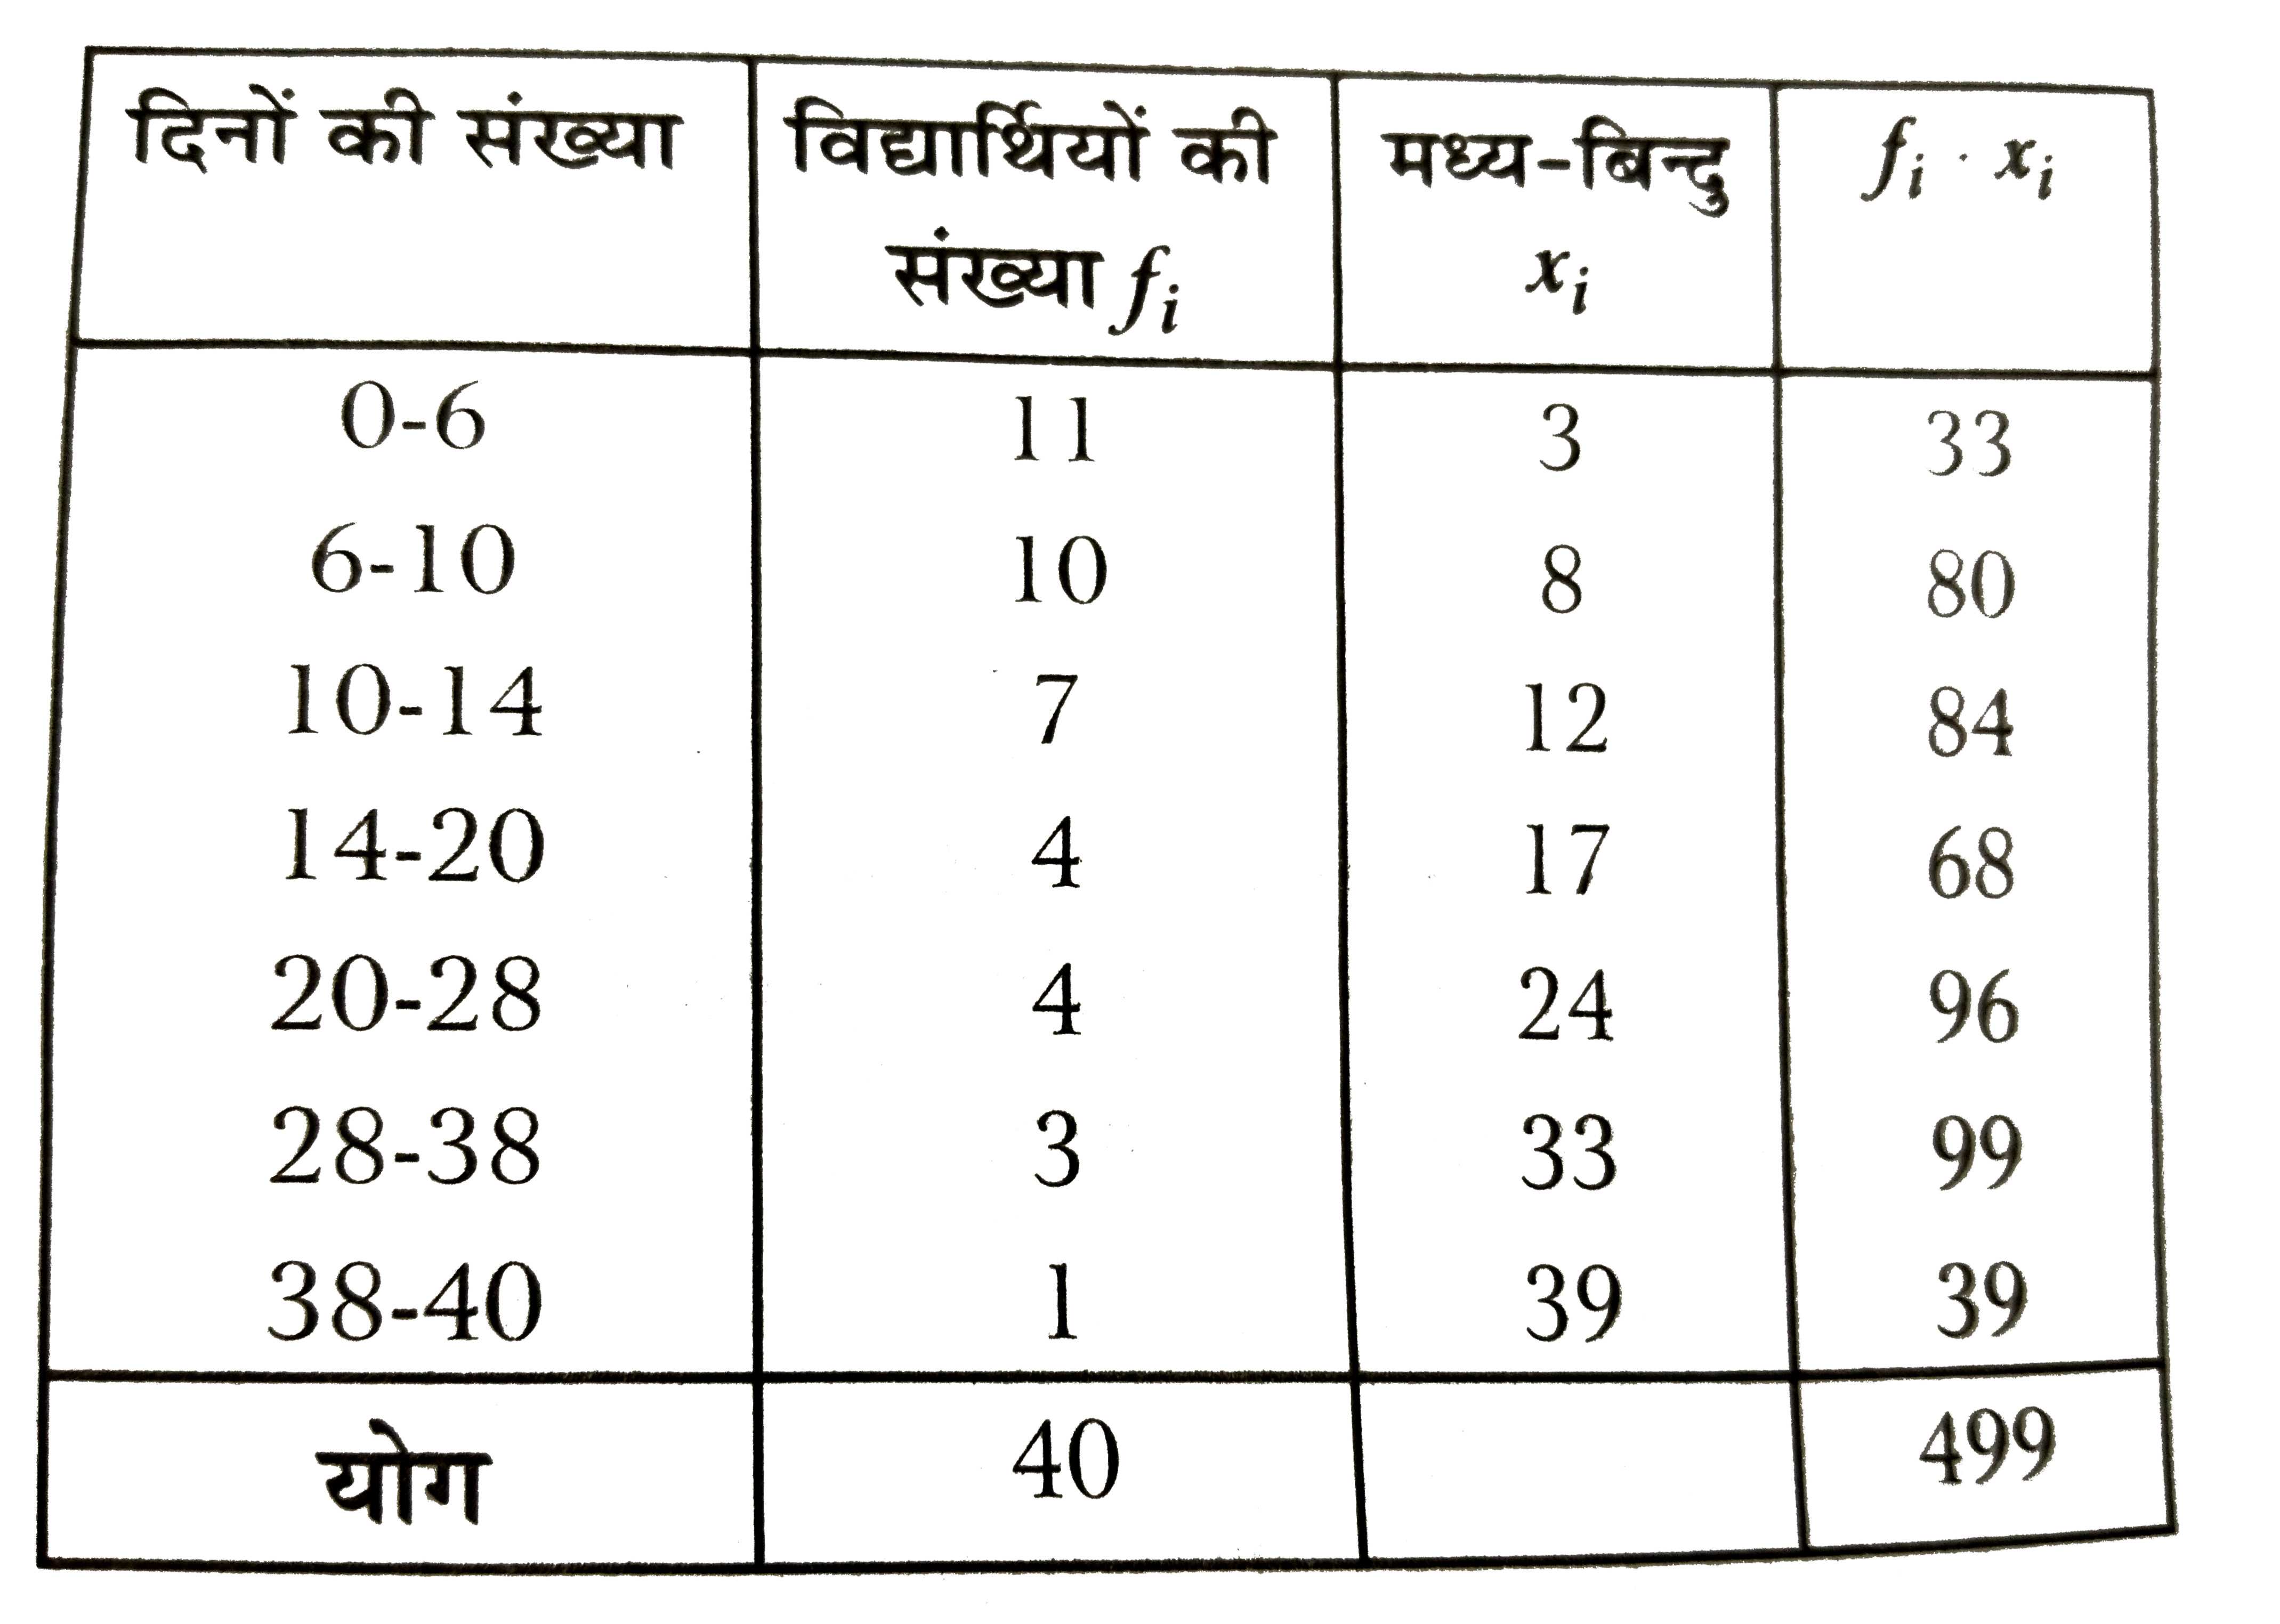 दिनों की संख्या विद्यार्थियों की मध्य-बिन्दु fi · xi
संख्या fi xi
0-6 11 3 33
6-10 10 8 80
10-14 7 12 84
14-20 4 17 68
20-28 4 24 96
28-38 3 33 99
38-40 1 39 39
योग 40 499